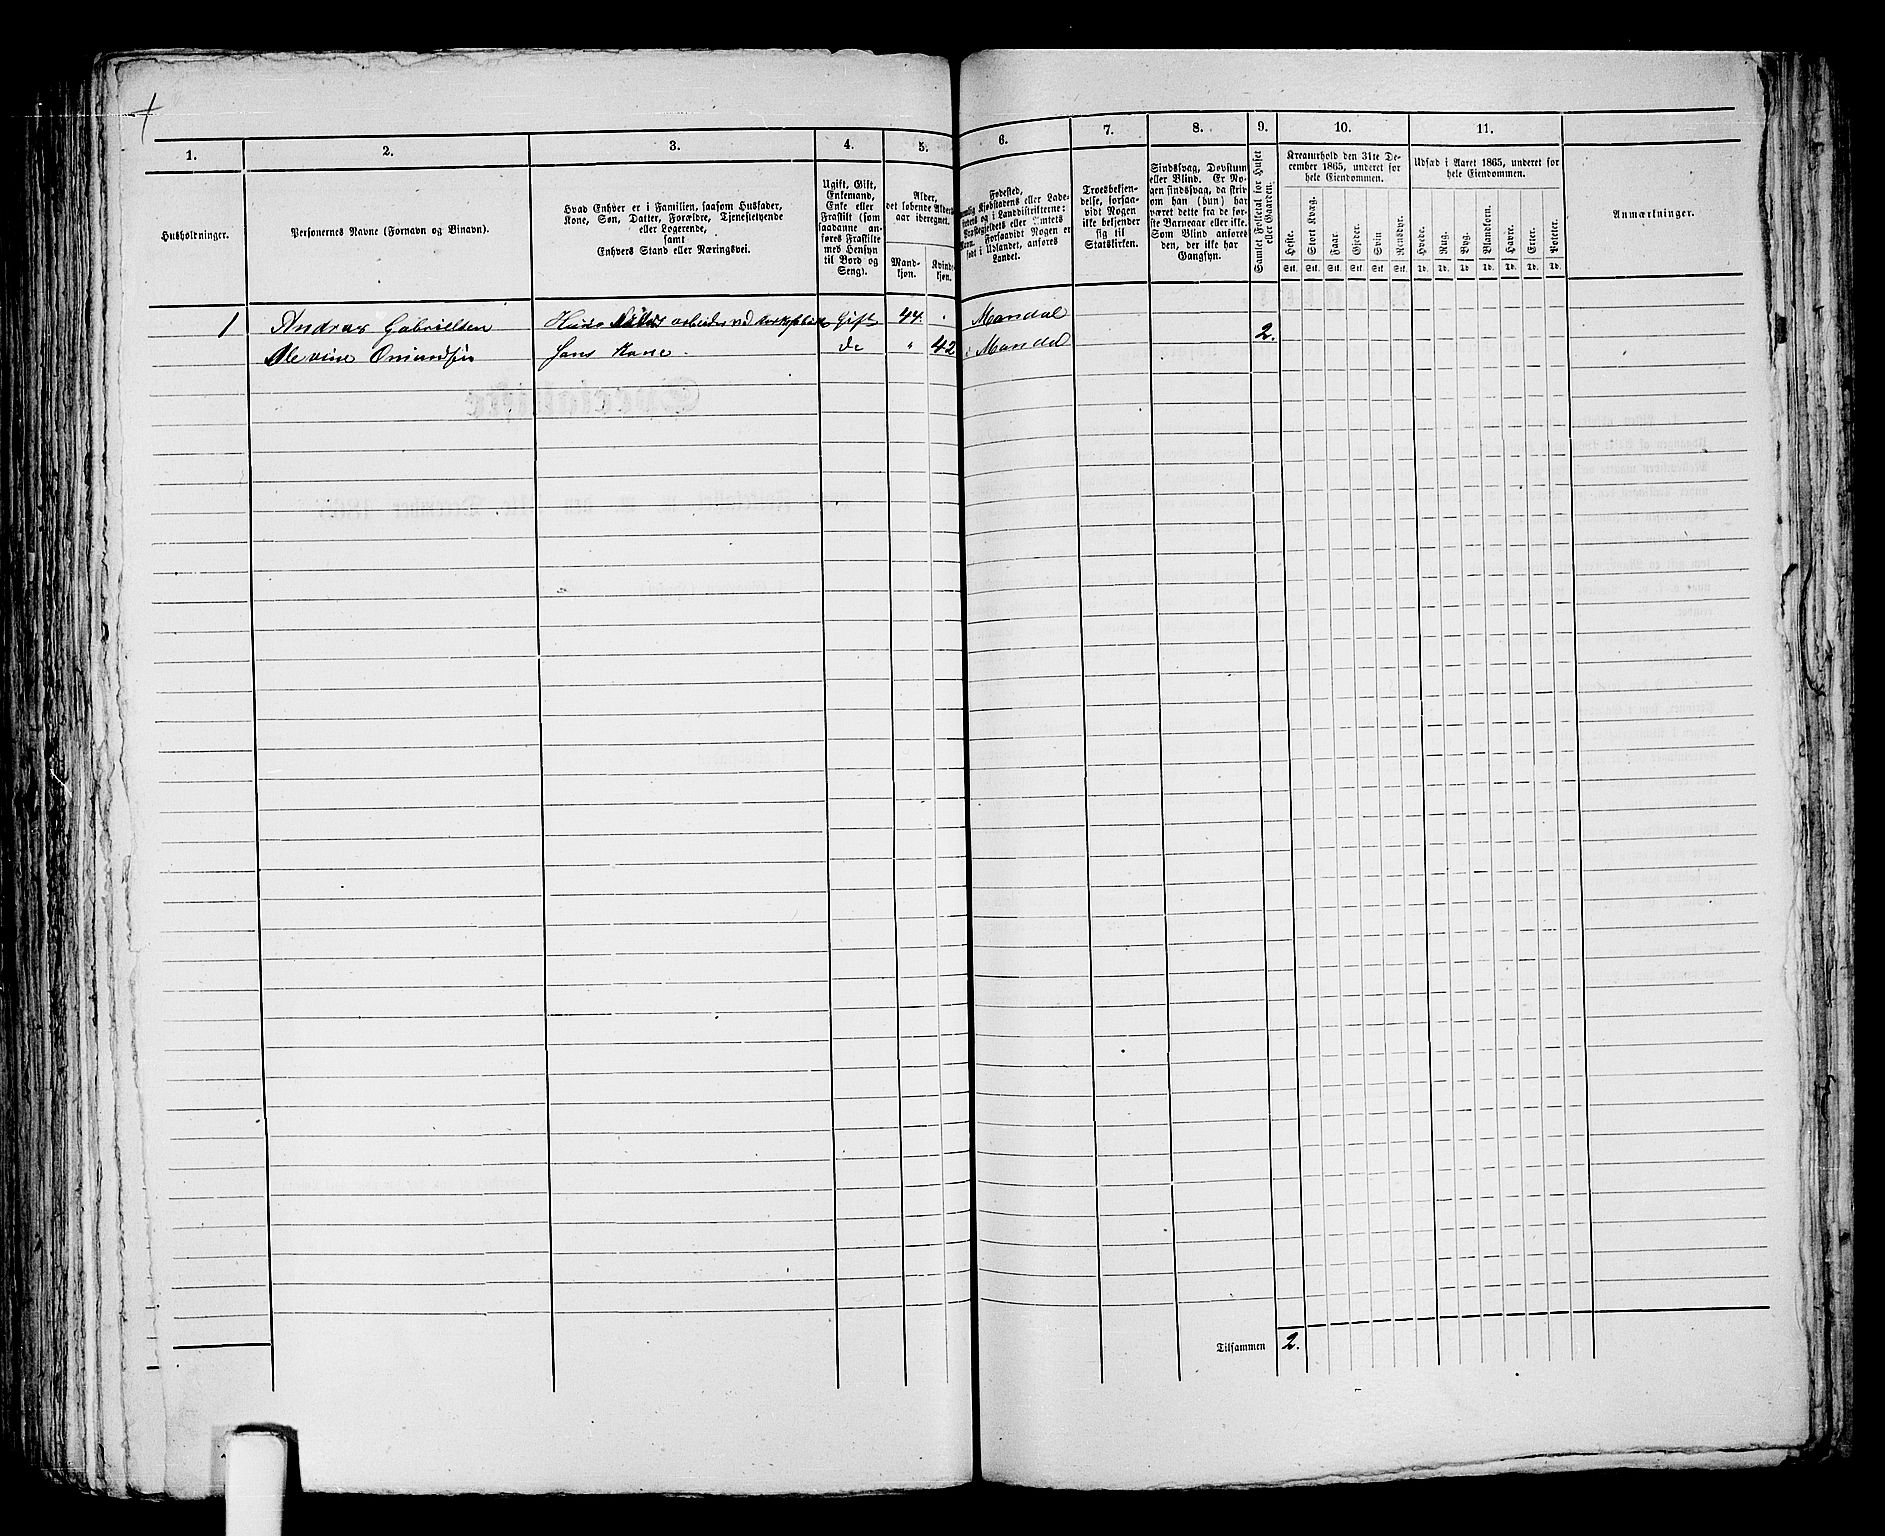 1.
2.
3.
4.
5.
6.
7.
8.
9.
10.
11.
Husholdninger.
Personernes Navne (Fornavn og Binavn).
Hvad Enhver er i Familien, saasom Husfader,
Kone, Søn, Datter, Forældre, Tjenestetyende
eller Logerende,
samt
Enhvers Stand eller Næringsvei.
Ugift, Gift,
Enkemand,
Enke eller
Fraskilt (som
saadanne an-
føres Fraskilte
med Hensyn
til Bord og
Seng).
Alder,
det løbende Alders-
aar iberegnet.
Mand-
kjøn.
Kvinde-
kjøn.
Fødested,
nemlig Kjøbstadens eller Lade-
stedets og i Landdistrikterne:
Præstegjeldets eller Amtets
Navn. Forsaavidt Nogen er
født i Udlandet, anføres
Landet.
Troesbekjen-
delse, forsaa-
vidt Nogen
ikke bekjender
sig til
Statskirken.
Sindssvag, Døvstum
eller Blind. Er No-
gen sindssvag, da skriv
om han (hun) har
været dette fra de før-
ste Barneaar eller ikke.
Som Blind anføres
den, der ikke har
Gangsyn.
Samlet Folketal for Huset
eller Gaarden.
Kreaturhold den 31te De-
cember 1865, underet for
hele Eiendommen.
Heste.
Stort Kvæg.
Faar.
Gjeder.
Svin
Rensdyr.
Stk. Stk. Stk. Stk. Stk. Stk.
Udsæd i Aaret 1865, underet for
hele Eiendommen.
Hvede.
Rug.
Byg.
Blandkorn.
Havre.
Erter.
Poteter.
Td. Td. Td. Td. Td. Td. Td.
Anmærkninger.
1 Andreas Gabrielsen arbeider ved Gift 44. Mandal
Olevine Omundsen Hans Kone. do " 42 Mandal 2.
Tilsammen 2.